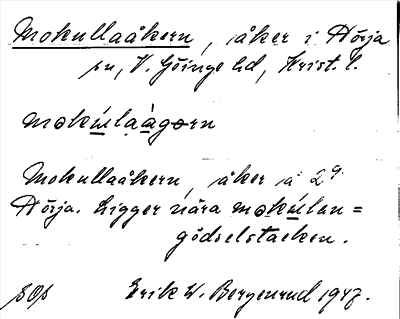 Mokullaåkern, åker i Hörja
sn, V. Göinge hd, Krist. l.
mokúlaàgɘrn
Mokullaåkern, åker å 2q.
Hörja. Ligger nära mokúlan =
gödselstacken.
Erik W. Bergenrud 1947.